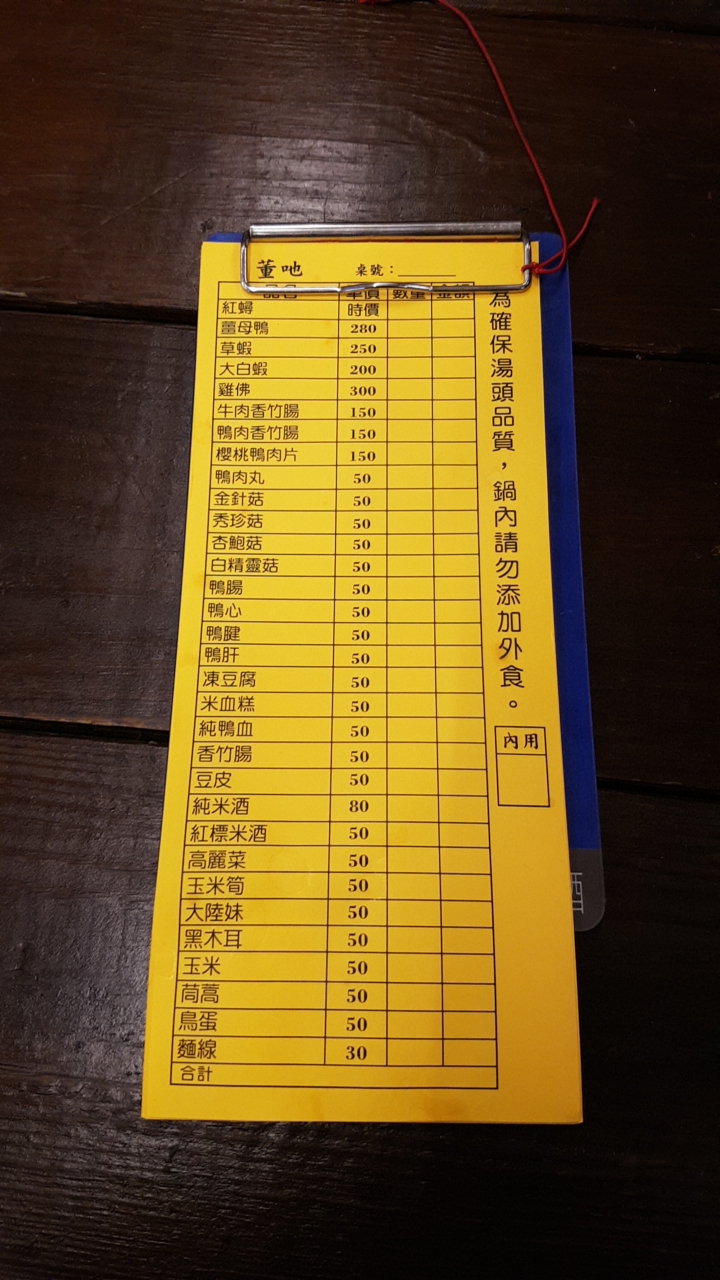 董吔 桌號：
品名 單價 數量 金額
紅蟳 時價
薑母鴨 280
草蝦 250
大白蝦 200
雞佛 300
牛肉香竹腸 150
鴨肉香竹腸 150
櫻桃鴨肉片 150
鴨肉丸 50
金針菇 50
秀珍菇 50
杏鮑菇 50
白精靈菇 50
鴨腸 50
鴨心 50
鴨腱 50
鴨肝 50
凍豆腐 50
米血糕 50
純鴨血 50
香竹腸 50
豆皮 50
純米酒 80
紅標米酒 50
高麗菜 50
玉米筍 50
大陸妹 50
黑木耳 50
玉米 50
茼蒿 50
鳥蛋 50
麵線 30
合計
為確保湯頭品質，鍋內請勿添加外食。
內用
酒